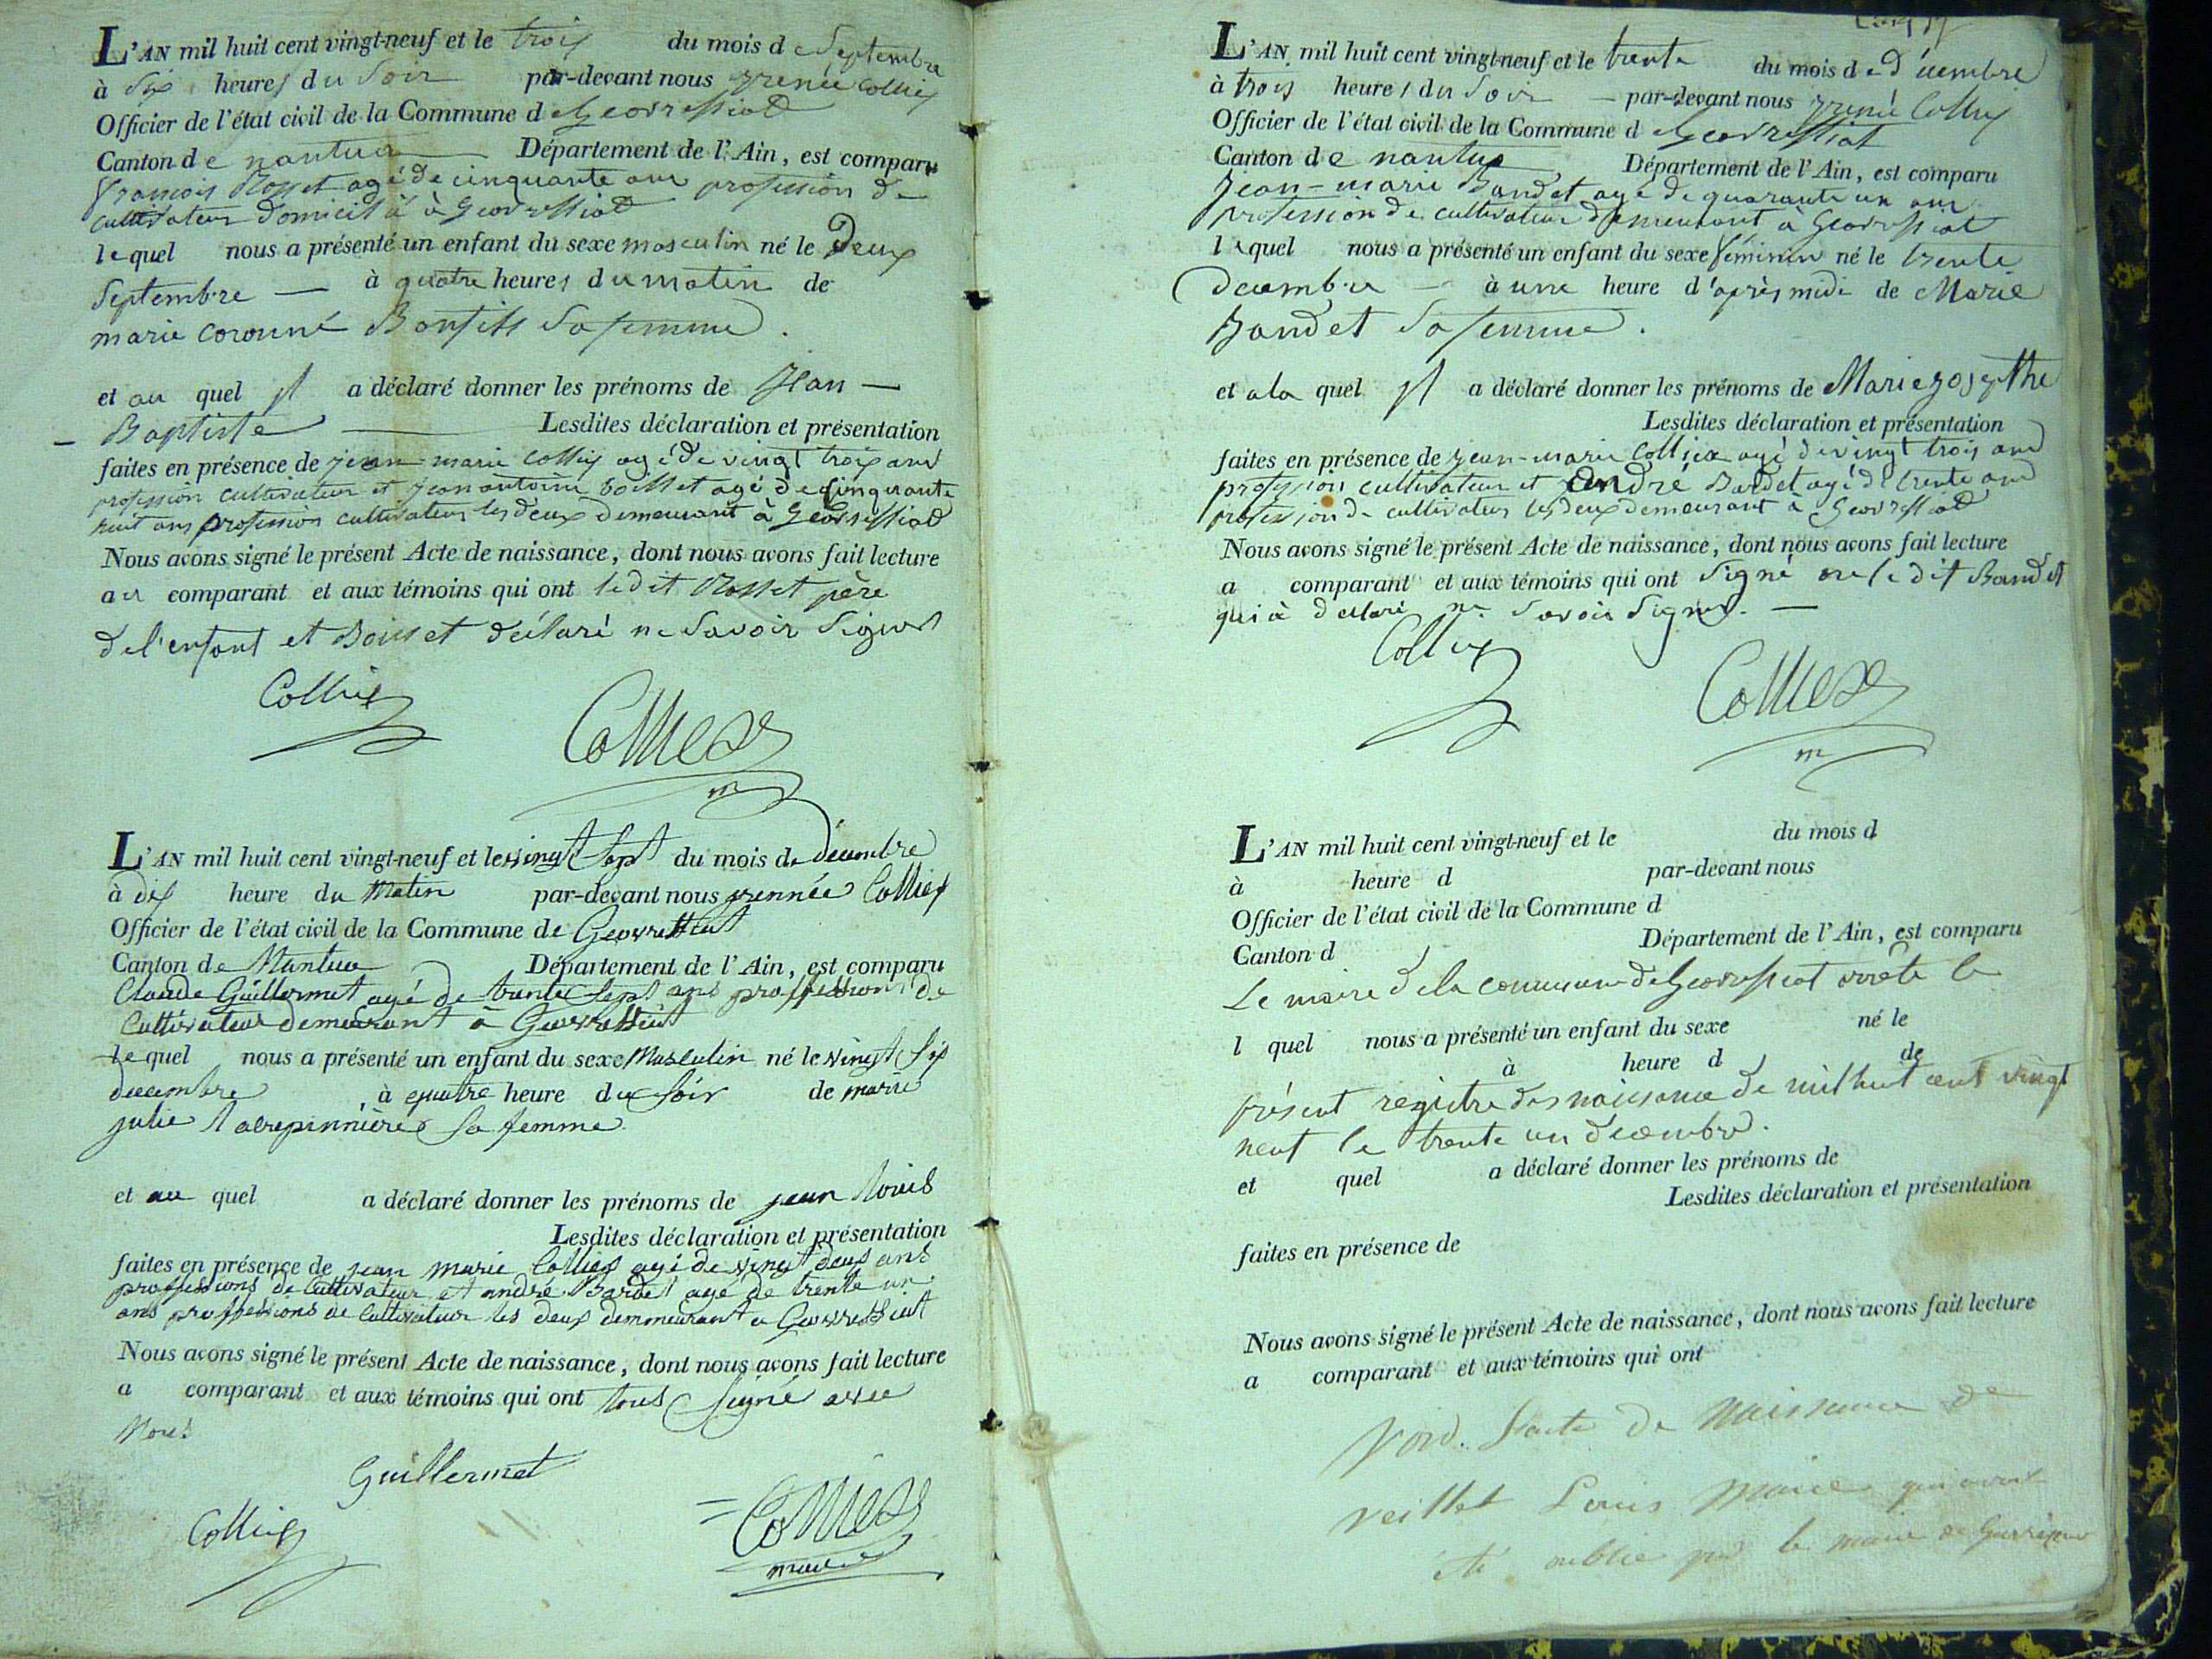 L'AN mil huit cent vingt-neuf et le trois du mois de Septembre
à Six heures du Soir par-devant nous yrenée Colliex
Officier de l'état civil de la Commune de Geovressiat
Canton de nantua Département de l'Ain, est comparu
François Rosset agé de cinquante ans profession de
cultivateur domicilié à Geovressiat
lequel nous a présenté un enfant du sexe masculin né le Deux
Septembre — à quatre heures du matin de
marie Bonfils Sa femme.
et au quel il a déclaré donner les prénoms de Jean —
Baptiste Lesdites déclaration et présentation
faites en présence de jean-marie Colliex agé de vingt trois ans
profession cultivateur et jean antoine Boisset agé de cinquante
huit ans profession cultivateur les deux demeurant à Geovressiat
Nous avons signé le présent Acte de naissance, dont nous avons fait lecture
au comparant et aux témoins qui ont le dit Rosset père
de l'enfant et Boisset déclaré ne Savoir Signer
Colliex
Colliex
m
L'AN mil huit cent vingt-neuf et le vingt Sept du mois de décembre
à dix heure du Matin par-devant nous yrennée Colliex
Officier de l'état civil de la Commune de Geovressiat
Canton de Nantua Département de l'Ain, est comparu
Claude Guillermet agé de trente Sept ans proffession de
Cultivateur demeurant à Geovressiat
lequel nous a présenté un enfant du sexe Masculin né le vingt Six
decembre à quatre heure du Soir de marie
julie Sa femme
et au quel a déclaré donner les prénoms de jean louis
Lesdites déclaration et présentation
faites en présence de jean marie Colliex agé de vingt deux ans
proffessions de Cultivateur et andré Bardet agé de trente un
ans proffessions de Cultivateur les deux demmeurant a Geovressiat
Nous avons signé le présent Acte de naissance, dont nous avons fait lecture
a comparant et aux témoins qui ont tous Signé avec
Nous
Guillermet
Colliex
Colliex
maire
L'AN mil huit cent vingt-neuf et le trente du mois de décembre
à trois heures du Soir — par-devant nous yrené Colliex
Officier de l'état civil de la Commune de Geovressiat
Canton de nantua Département de l'Ain, est comparu
Jean-marie Bandet agé de quarante un ans
profession de cultivateur demeurant à Geovressiat
lequel nous a présenté un enfant du sexe féminin né le trente
decembre — à une heure d'après midi de Marie
Bandet Sa femme.
et a la quel il a déclaré donner les prénoms de Marie
Lesdites déclaration et présentation
faites en présence de jean-marie Colliex agé de vingt trois ans
profession cultivateur et André Bardet agé de trente ans
profession de cultivateur les deux demeurant à Geovressiat
Nous avons signé le présent Acte de naissance, dont nous avons fait lecture
a comparant et aux témoins qui ont Signé le dit Bandet
qui à déclaré ne Savoir Signer. —
Colliex
Colliex
m
L'AN mil huit cent vingt-neuf et le du mois d
à heure d par-devant nous
Officier de l'état civil de la Commune d
Canton d Département de l'Ain, est comparu
Le maire de la commune de Geovressiat arrête le
l quel nous a présenté un enfant du sexe né le
à heure d de
présent registre des naissance de mil huit cent vingt
neuf le trente un décembre.
et quel a déclaré donner les prénoms de
Lesdites déclaration et présentation
faites en présence de
Nous avons signé le présent Acte de naissance, dont nous avons fait lecture
a comparant et aux témoins qui ont
l'acte de Naissance de
Veillet Louis Marie qui avait
été oublié par le maire de